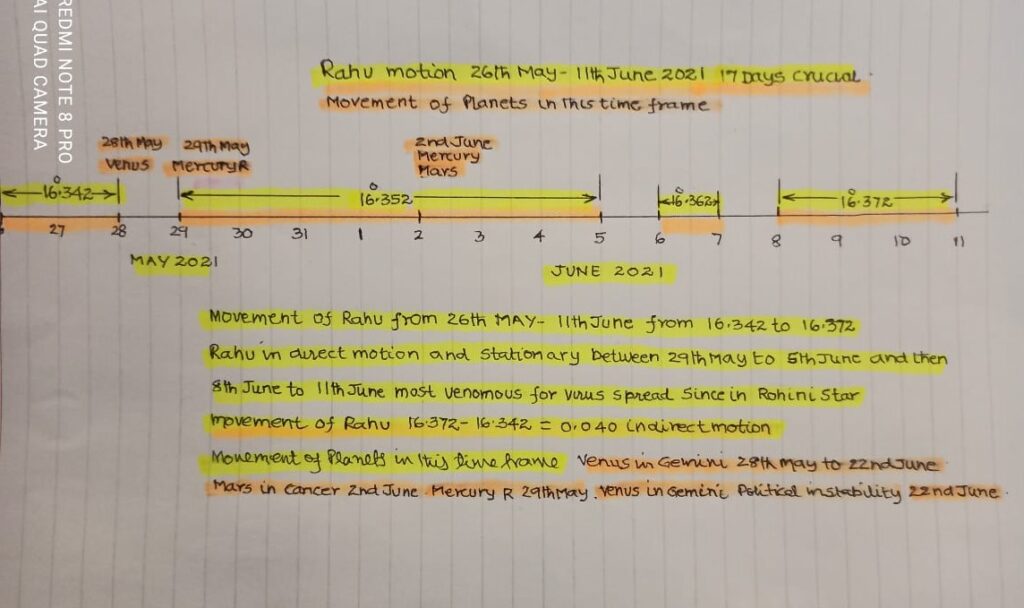 REDMI NOTE 8 PRO
AI QUAD CAMERA
Rahu motion 26th May - 11th June 2021 17 Days crucial.
Movement of Planets in this time frame
28th May
Venus
29th May
Mercury R
2nd June
Mercury
Mars
16.342
16.352
16.362
16.372
27 28 29 30 31 1 2 3 4 5 6 7 8 9 10 11
MAY 2021
JUNE 2021
Movement of Rahu from 26th MAY - 11th June from 16.342 to 16.372
Rahu in direct motion and stationary between 29th May to 5th June and then
8th June to 11th June most venomous for virus spread Since in Rohini Star
movement of Rahu 16.372 - 16.342 = 0.040 in direct motion
Movement of Planets in this time frame Venus in Gemini 28th May to 22nd June
Mars in cancer 2nd June Mercury R 29th May. Venus in Gemini Political instability 22nd June.